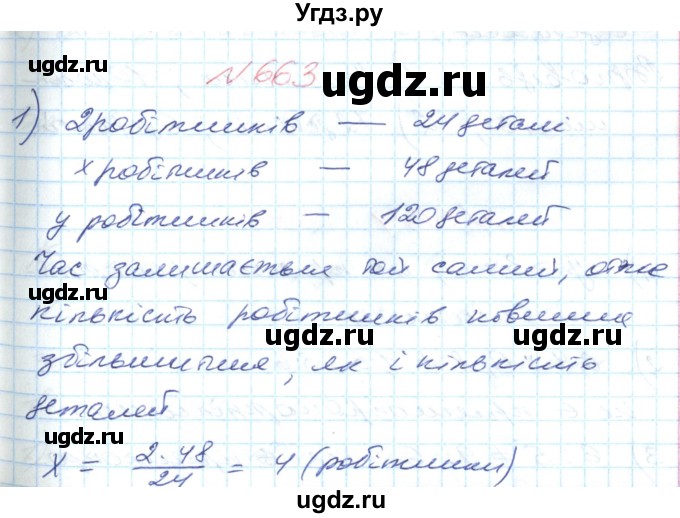 Угдз.ру
ugdz.ru
№663
ugdz.ru
1) 2 робітників — 24 деталі
х робітників — 48 деталей
у робітників — 120 деталей
Час залишається той самий, отже
ugdz.ru
кількість робітників повинна
ugdz.ru
збільшитися, як і кількість
деталей
ugdz.ru
X = 2·48/24 = 4 (робітники)
ugdz.ru